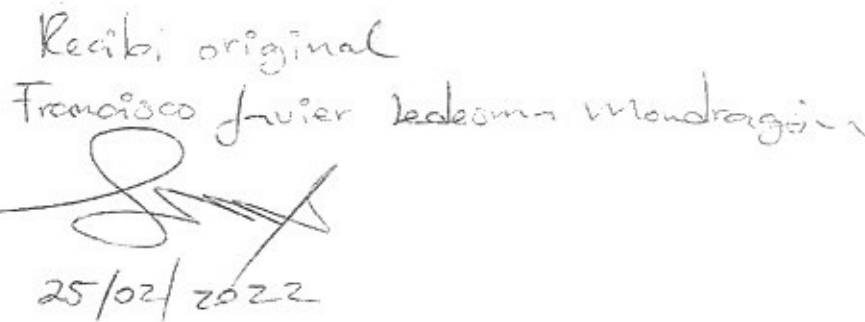 Recibi original
Francisco Javier Ledesma Mondragón
25/02/2022